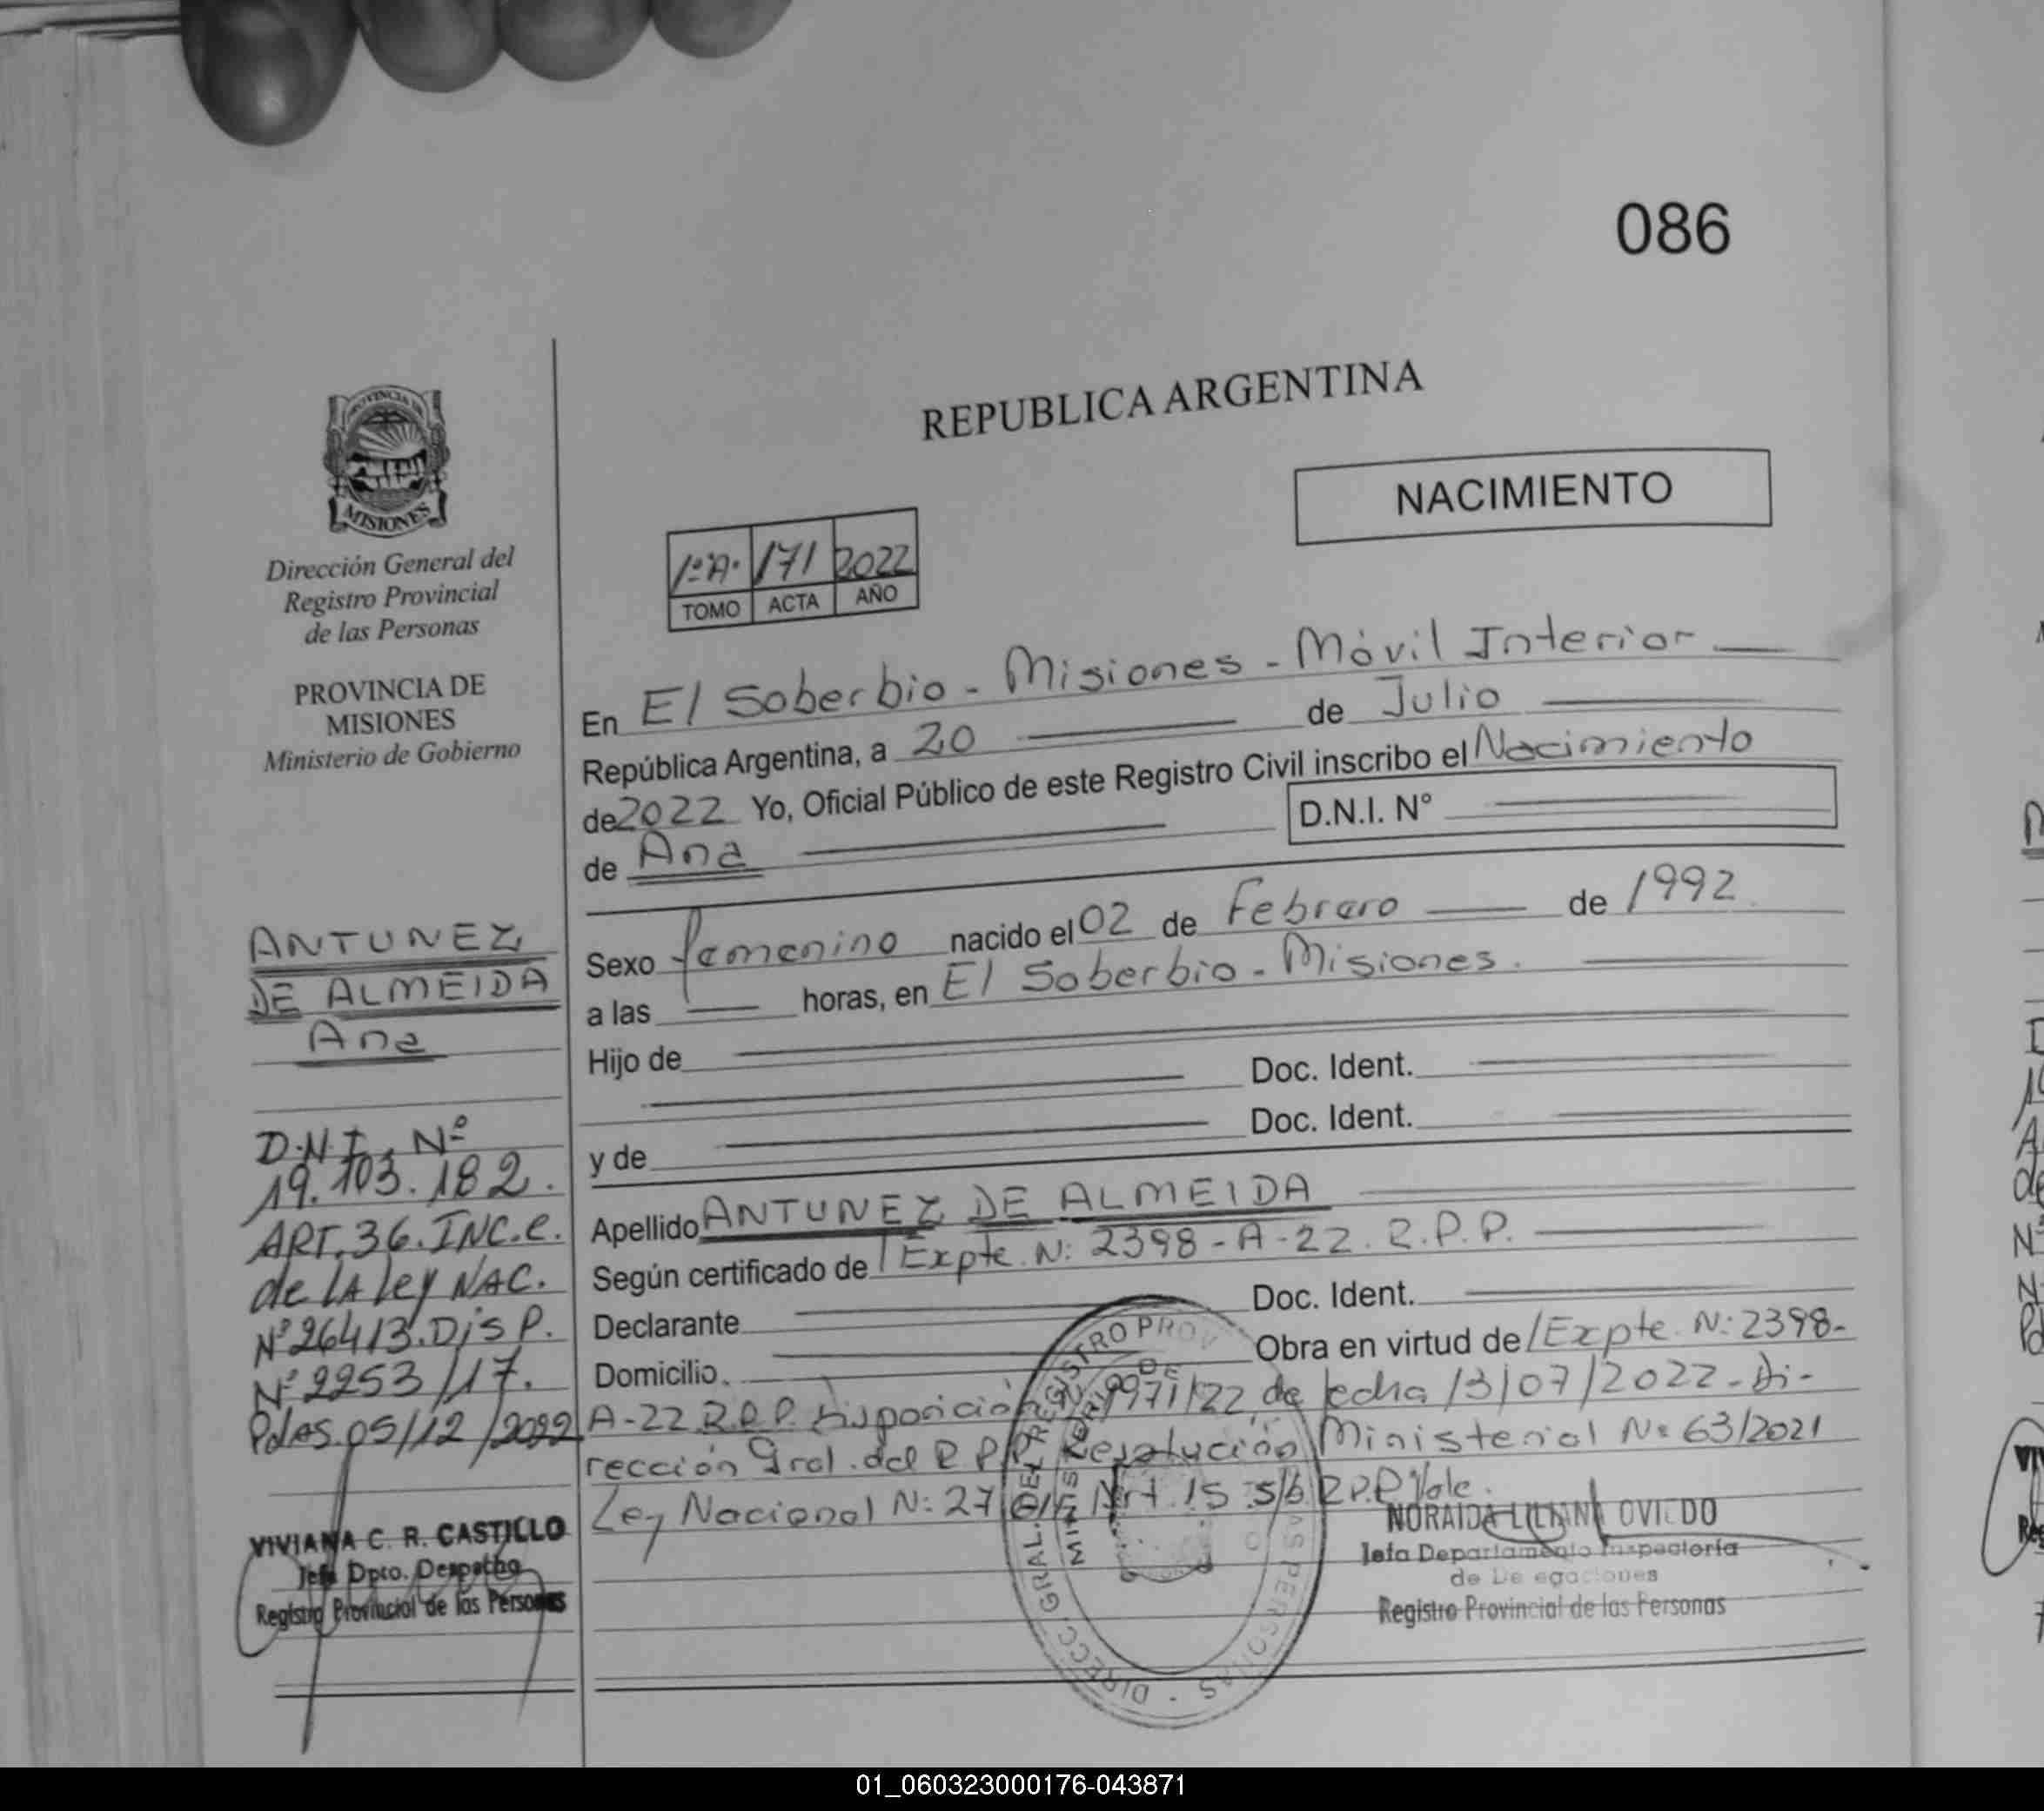 086
REPUBLICA ARGENTINA
NACIMIENTO
PROVINCIA DE
MISIONES
Dirección General del
Registro Provincial
de las Personas
PROVINCIA DE
MISIONES
Ministerio de Gobierno
1ºA. 171 2022
TOMO ACTA AÑO
En El Soberbio - Misiones - Móvil Interior
República Argentina, a 20 de Julio
de 2022 Yo, Oficial Público de este Registro Civil inscribo el Nacimiento
de Ana D.N.I. N°
Sexo femenino nacido el 02 de Febrero de 1992
a las horas, en El Soberbio - Misiones.
Hijo de
Doc. Ident.
y de Doc. Ident.
Apellido ANTUNEZ DE ALMEIDA
Según certificado de / Expte. N: 2398-A-22. R.P.P.
Declarante Doc. Ident.
Domicilio. Obra en virtud de / Expte. N: 2398-
A-22 R.P.P. Disposición N: 9971/22 de fecha 13/07/2022 - Di-
rección Gral. del R.P.P. Resolución Ministerial N: 63/2021
Ley Nacional N: 27 Art. 15 s/b R.P.P. Vale.
ANTUNEZ
DE ALMEIDA
Ana
D.N.I. Nº
19.103.182.
ART. 36. INC. C.
de LA ley NAC.
Nº 26413. DisP.
Nº 2253/17.
Pdas. 05/12/2022
VIVIANA C. R. CASTILLO
Jefa Dpto. Despacho
Registro Provincial de las Personas
NORAIDA LILIANA OVIEDO
Jefa Departamento Inspectoría
de Delegaciones
Registro Provincial de las Personas
DIRECC. GRAL. DEL REGISTRO PROV DE LAS PERSONAS
01_060323000176-043871